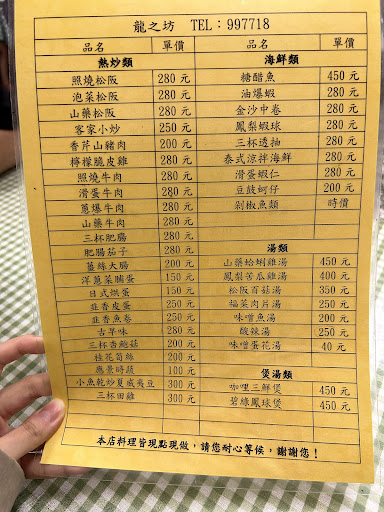 龍之坊 TEL：997718
品名 單價 品名 單價
熱炒類 海鮮類
照燒松阪 280 元 糖醋魚 450 元
泡菜松阪 280 元 油爆蝦 280 元
山藥松阪 280 元 金沙中卷 280 元
客家小炒 250 元 鳳梨蝦球 280 元
香芹山豬肉 200 元 三杯透抽 280 元
檸檬脆皮雞 280 元 泰式涼拌海鮮 280 元
照燒牛肉 280 元 滑蛋蝦仁 280 元
滑蛋牛肉 280 元 豆豉蚵仔 200 元
蔥爆牛肉 280 元 剁椒魚類 時價
山藥牛肉 280 元
三杯肥腸 280 元 湯類
肥腸茄子 280 元 山藥蛤蜊雞湯 450 元
薑絲大腸 200 元 鳳梨苦瓜雞湯 400 元
洋蔥菜脯蛋 150 元 松阪菇菇湯 350 元
日式烘蛋 150 元 福菜肉片湯 250 元
韭香皮蛋 250 元 味噌魚湯 200 元
韭香魚卷 250 元 酸辣湯 250 元
古早味 280 元 味噌蛋花湯 40 元
三杯杏鮑菇 200 元
桂花筍絲 200 元 煲湯類
應景時蔬 100 元 咖哩三鮮煲 450 元
小魚乾炒夏威夷豆 300 元 碧綠鳳球煲 450 元
三杯田雞 300 元
本店料理皆現點現做，請您耐心等侯，謝謝您！